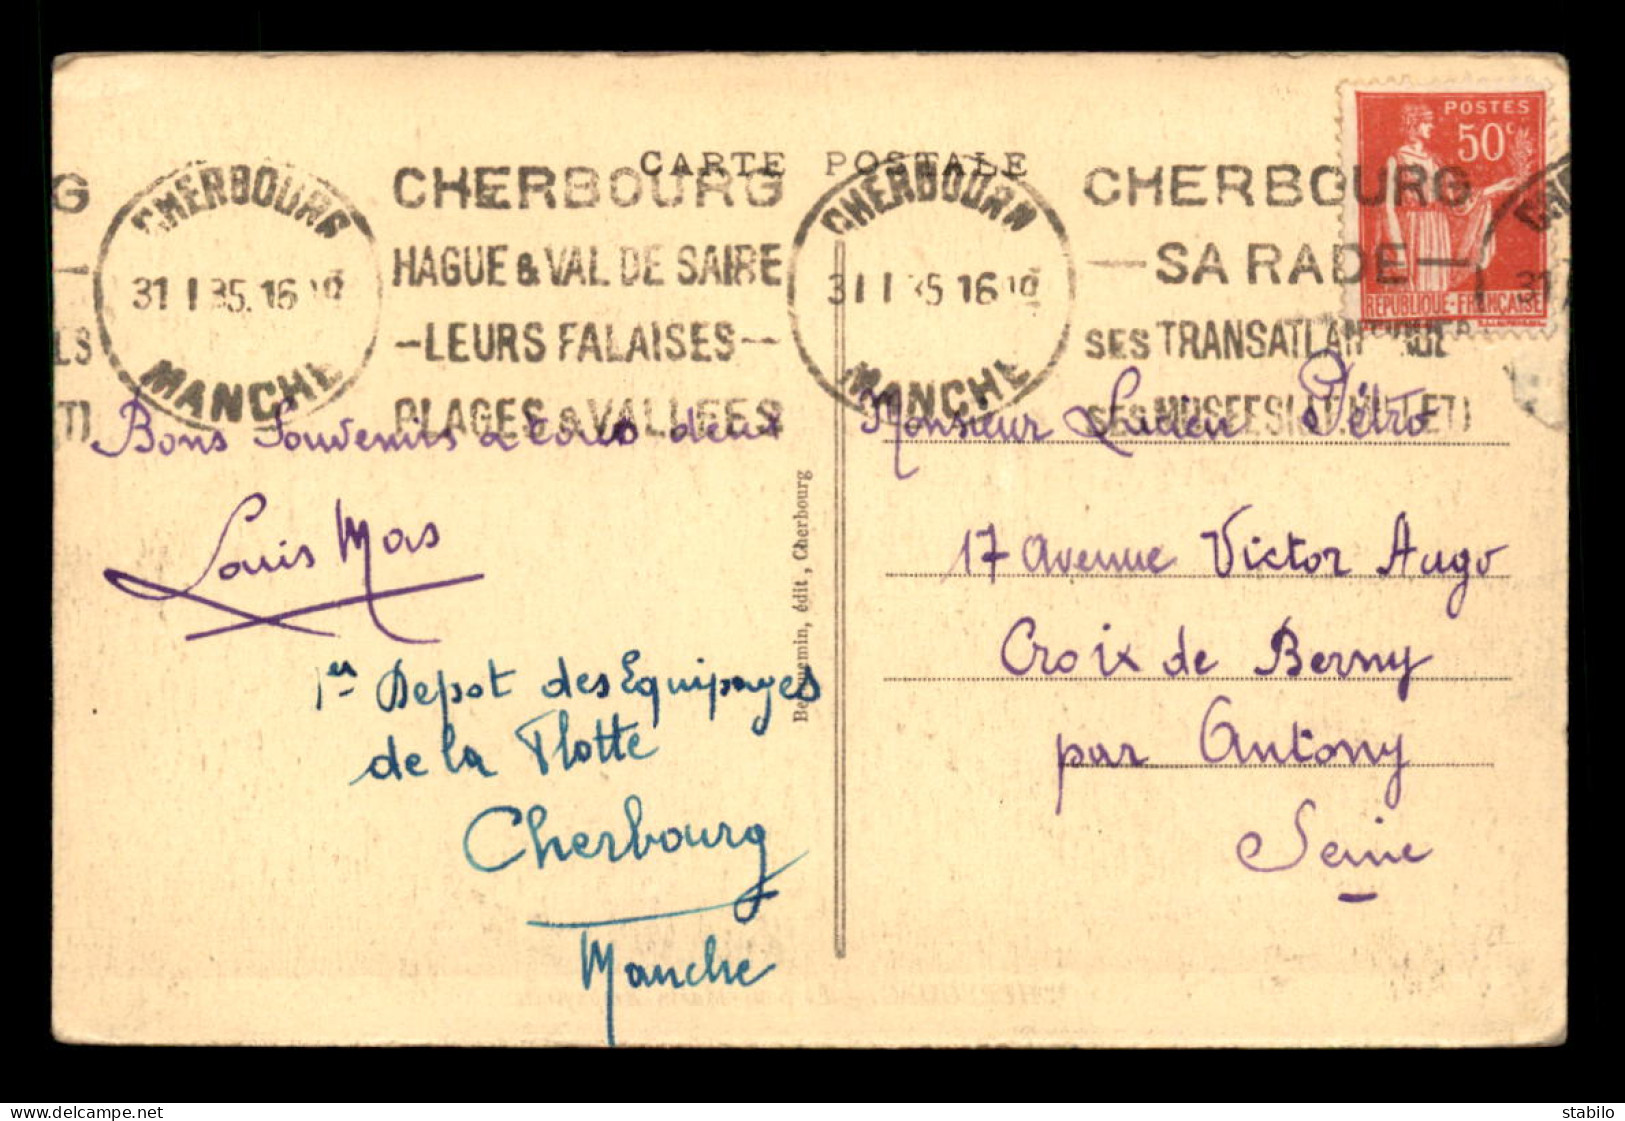 CARTE POSTALE
POSTES
50c
REPUBLIQUE-FRANÇAISE
CHERBOURG
31 I 35. 16
MANCHE
CHERBOURG
HAGUE & VAL DE SAIRE
-LEURS FALAISES-
PLAGES & VALLEES
CHERBOURG
31 I 35 16
MANCHE
CHERBOURG
-SA RADE-
SES
SES MUSEES
Bons Souvenirs a tous deux
Louis Mas
1er Depot des Equipages
de la Flotte
Cherbourg
Manche
édit, Cherbourg
Monsieur Lucien Pétro
17 avenue Victor Augo
Croix de Berny
par Antony
Seine
www.delcampe.net
stabilo